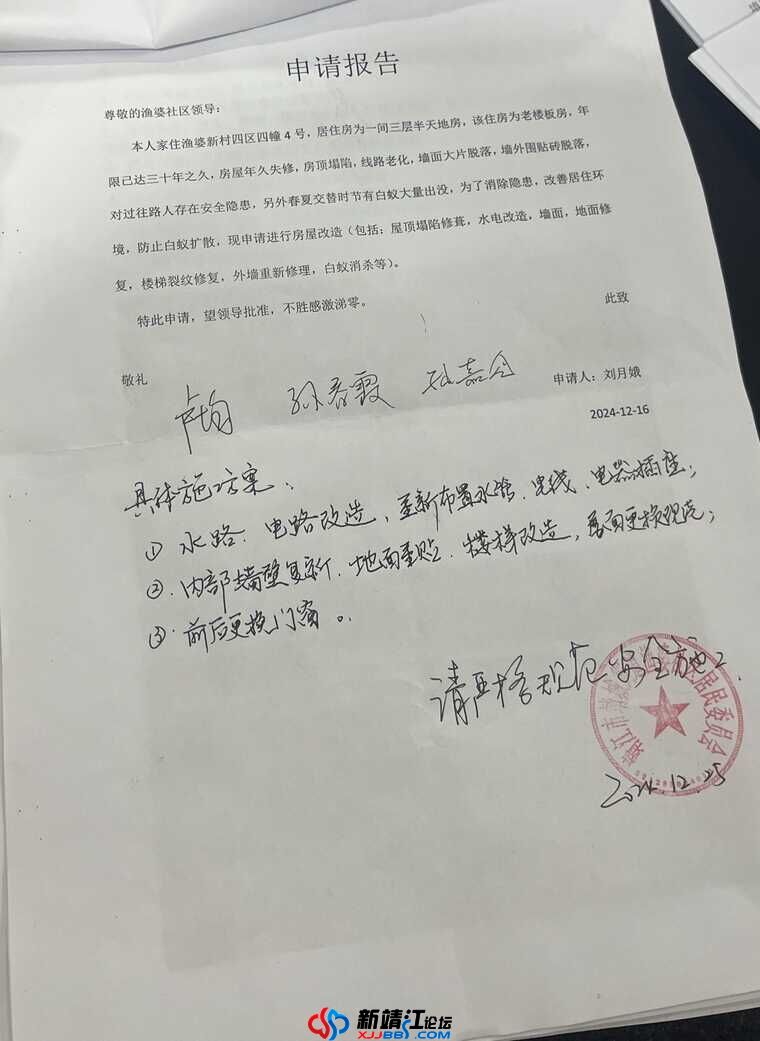 申请报告
尊敬的渔婆社区领导：
本人家住渔婆新村四区四幢4号，居住房为一间三层半天地房，该住房为老楼板房，年
限已达三十年之久，房屋年久失修，房顶塌陷，线路老化，墙面大片脱落，墙外围贴砖脱落，
对过往路人存在安全隐患，另外春夏交替时节有白蚁大量出没，为了消除隐患，改善居住环
境，防止白蚁扩散，现申请进行房屋改造（包括：屋顶塌陷修葺，水电改造，墙面，地面修
复，楼梯裂纹修复，外墙重新修理，白蚁消杀等）。
特此申请，望领导批准，不胜感激涕零。
此致
敬礼
孙春霞
申请人：刘月娥
2024-12-16
具体施工方案：
① 水路、电路改造，重新布置水管、电线、电器插座；
②、内部墙壁复新、地面重贴、楼梯改造，屋面更换现浇；
③、前后更换门窗。
请严格规范安全施工
居民委员会
2024.12.25
新靖江论坛
XJJBBS.COM